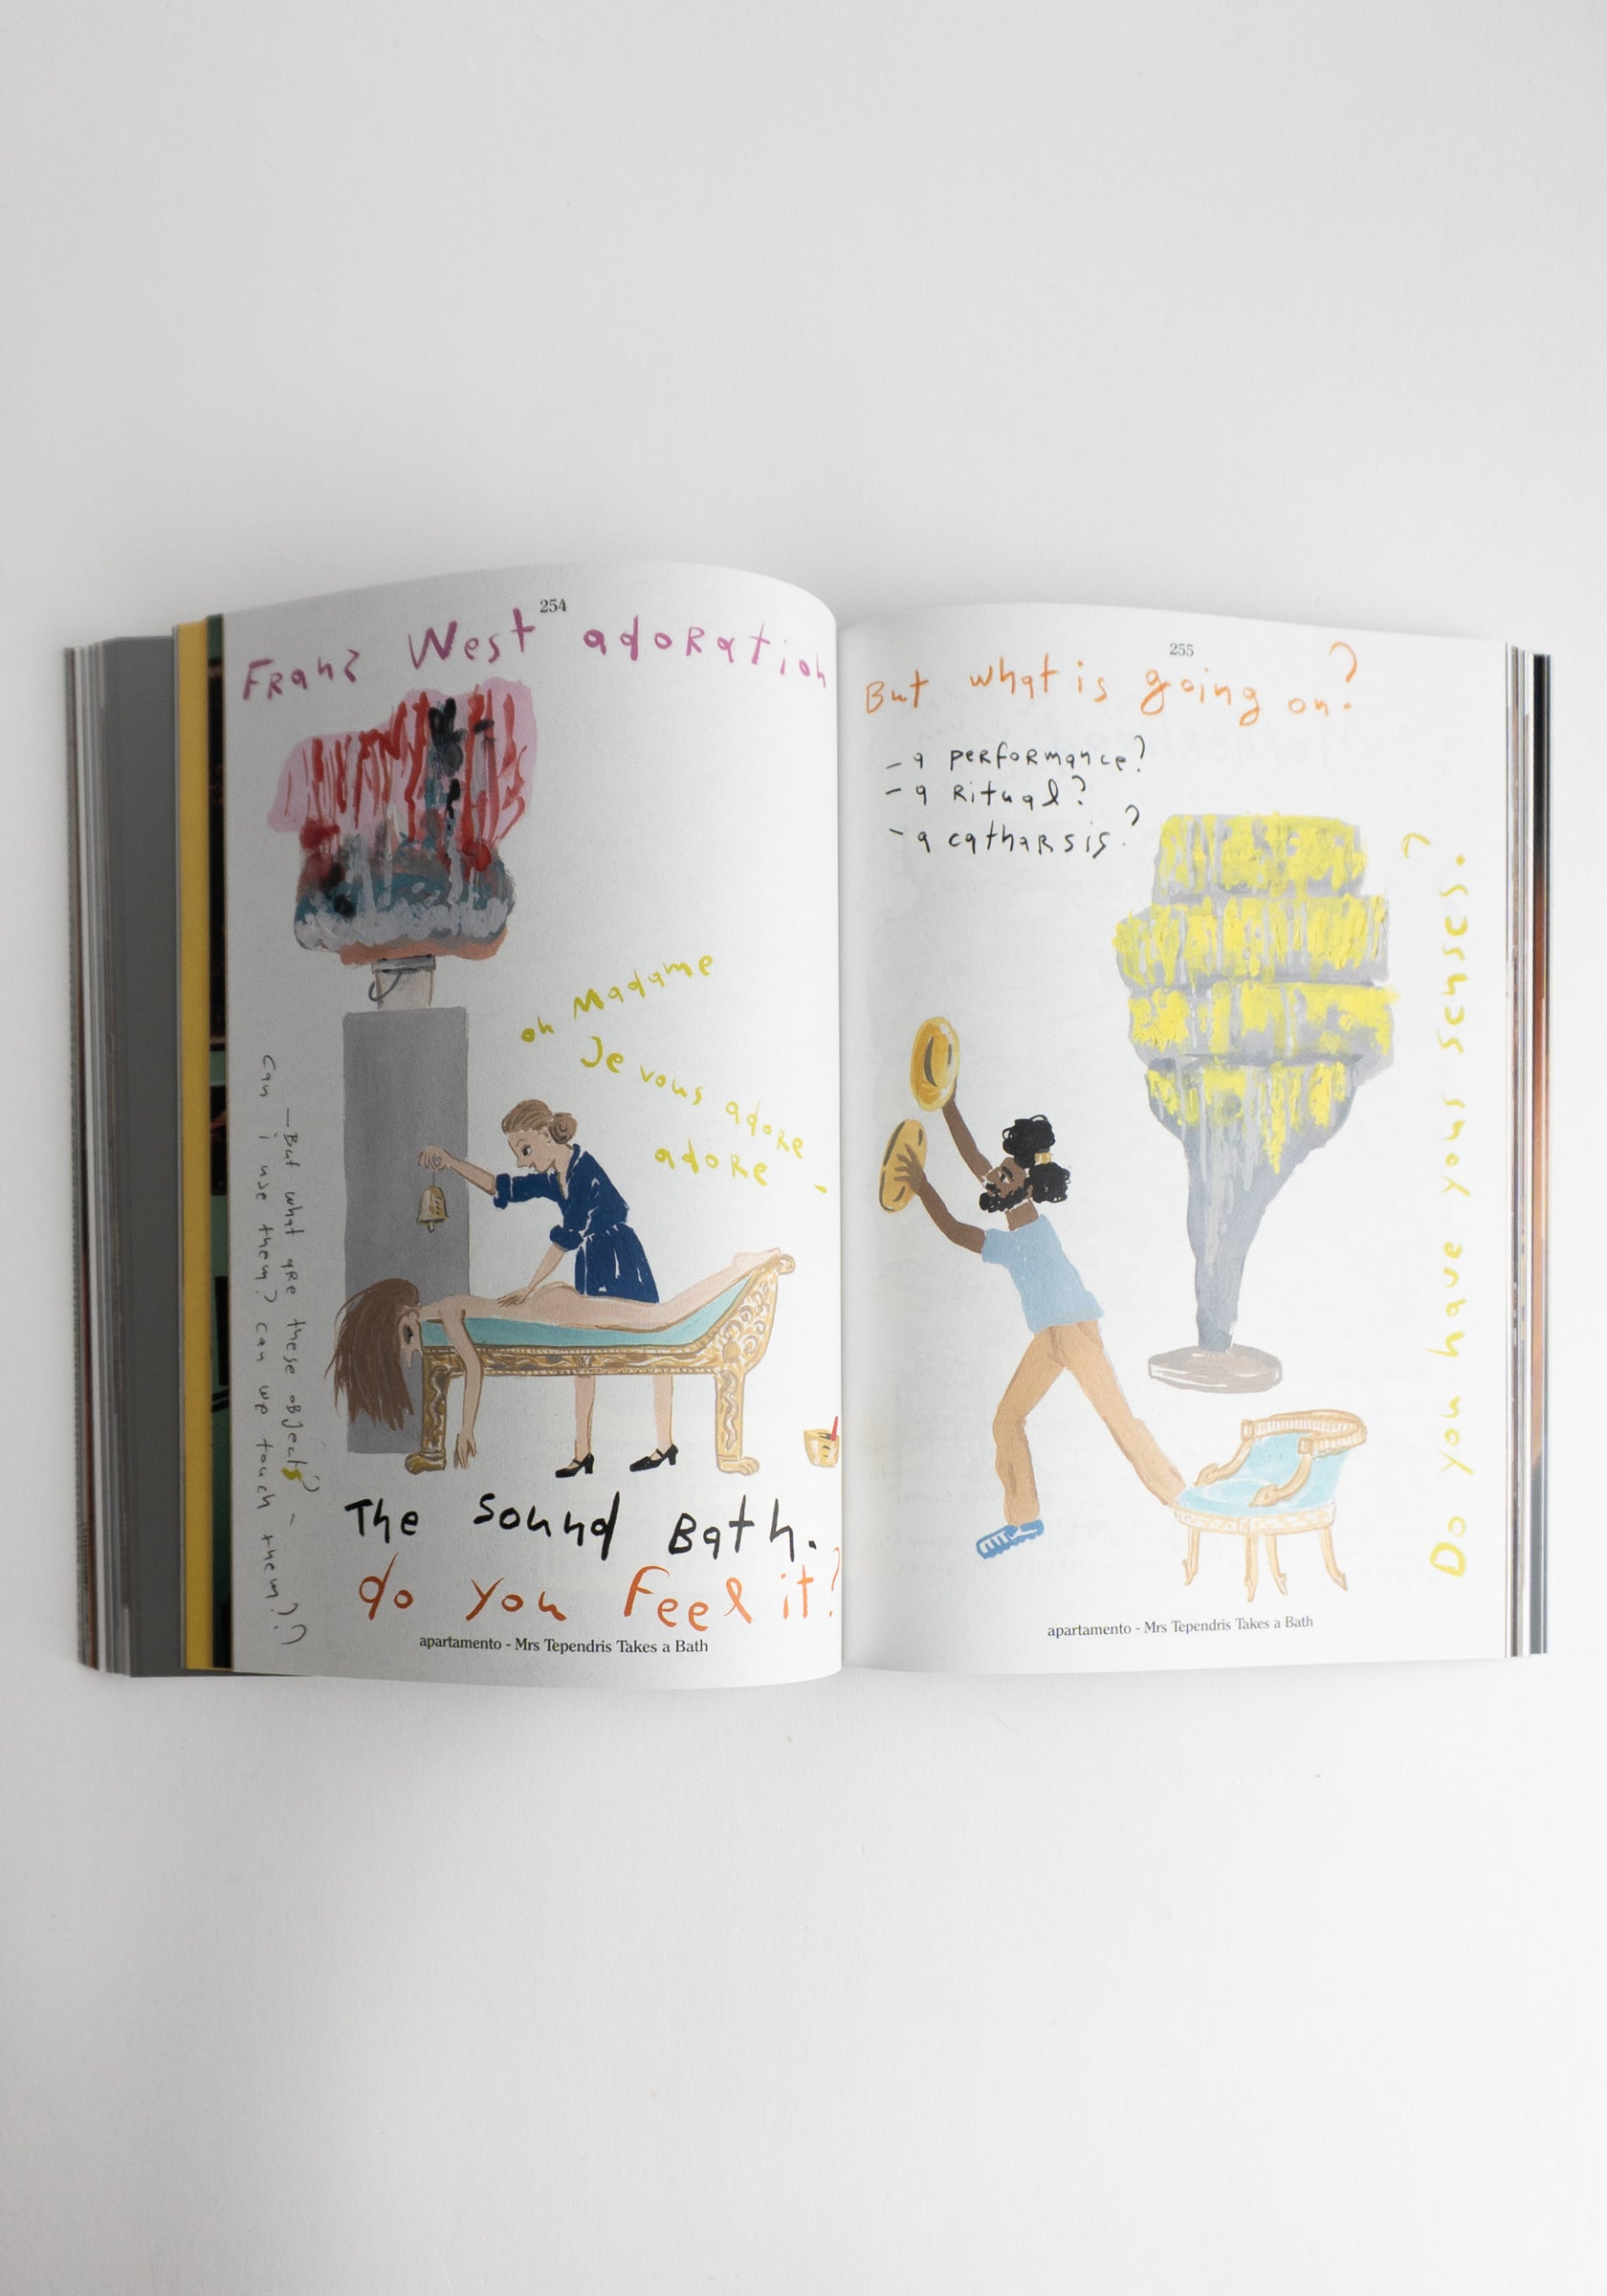 254
Franz West adoration
oh Madame
Je vous adore
adore -
— But what are these objects? -
can i use them? can we touch them??
The Sound Bath.
do you feel it?
apartamento - Mrs Tependris Takes a Bath
255
But what is going on?
- a performance?
- a Ritual?
- a catharsis?
Do you have yous senses?
apartamento - Mrs Tependris Takes a Bath